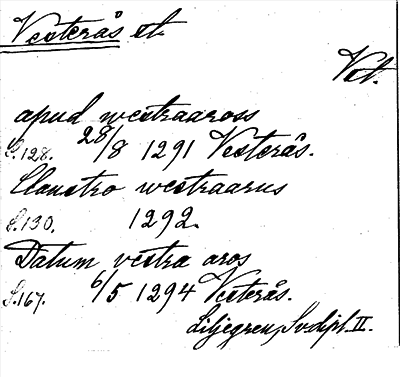 Vesterås st.
Vst.
apud westraaross
S.128. 28/8 1291 Vesterås.
Claustro westraarus
S.130. 1292.
Datum vestra aros
S.167. 6/5 1294 Vesterås.
Liljegren, Sv. dipl. II.